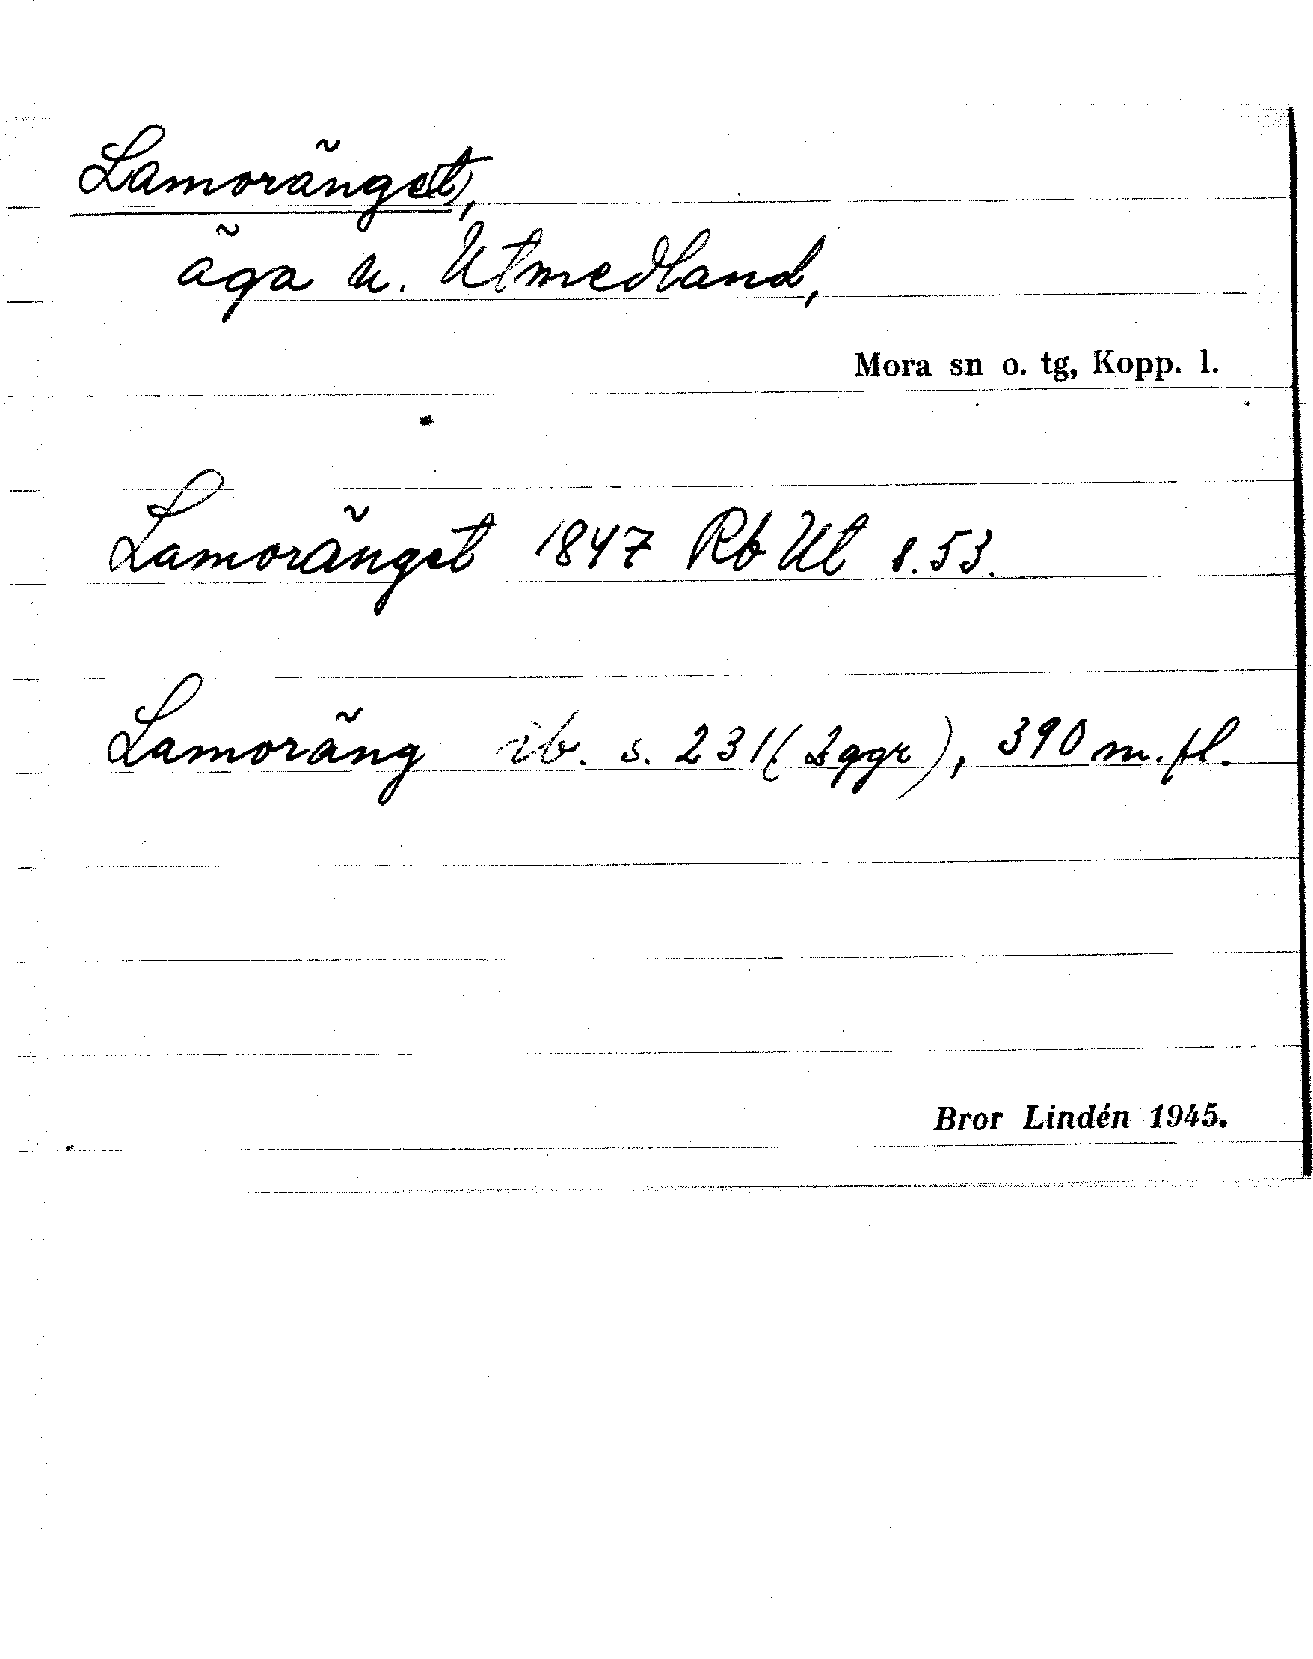 Lamoräng(et),
äga u. Utmedland,
Mora sn o. tg, Kopp. l.
Lamoränget 1847 Rb Ut s. 53.
Lamoräng ib. s. 231 (2 ggr), 390 m. fl.
Bror Lindén 1945.